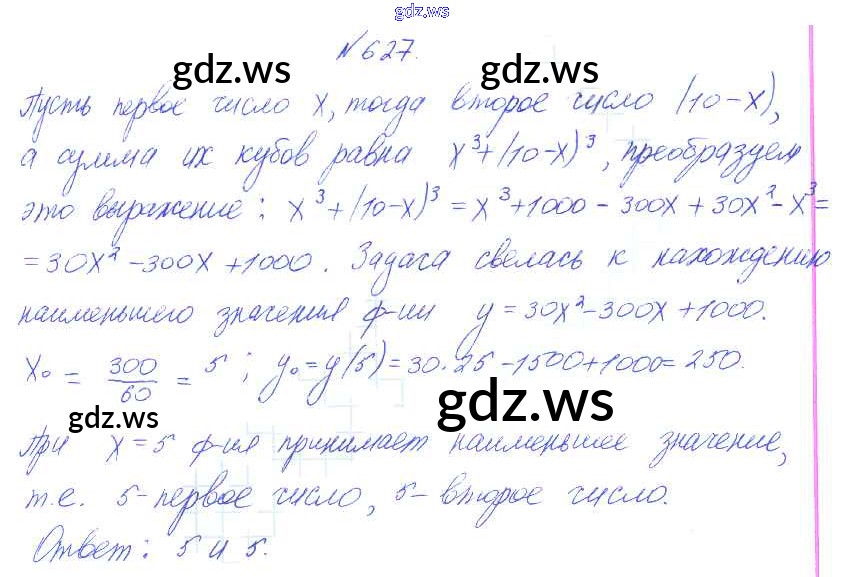 gdz.ws
№627.
gdz.ws
Пусть первое число x, тогда второе число (10-x),
а сумма их кубов равна x³+(10-x)³, преобразуем
это выражение: x³+(10-x)³ = x³+1000-300x+30x²-x³=
=30x²-300x+1000. Задача свелась к нахождению
наименьшего значения ф-ии y=30x²-300x+1000.
x₀ = 300/60 = 5; y₀=y(5)=30·25-1500+1000=250.
gdz.ws
gdz.ws
При x=5 ф-ия принимает наименьшее значение,
т.е. 5-первое число, 5-второе число.
Ответ: 5 и 5.
gdz.ws